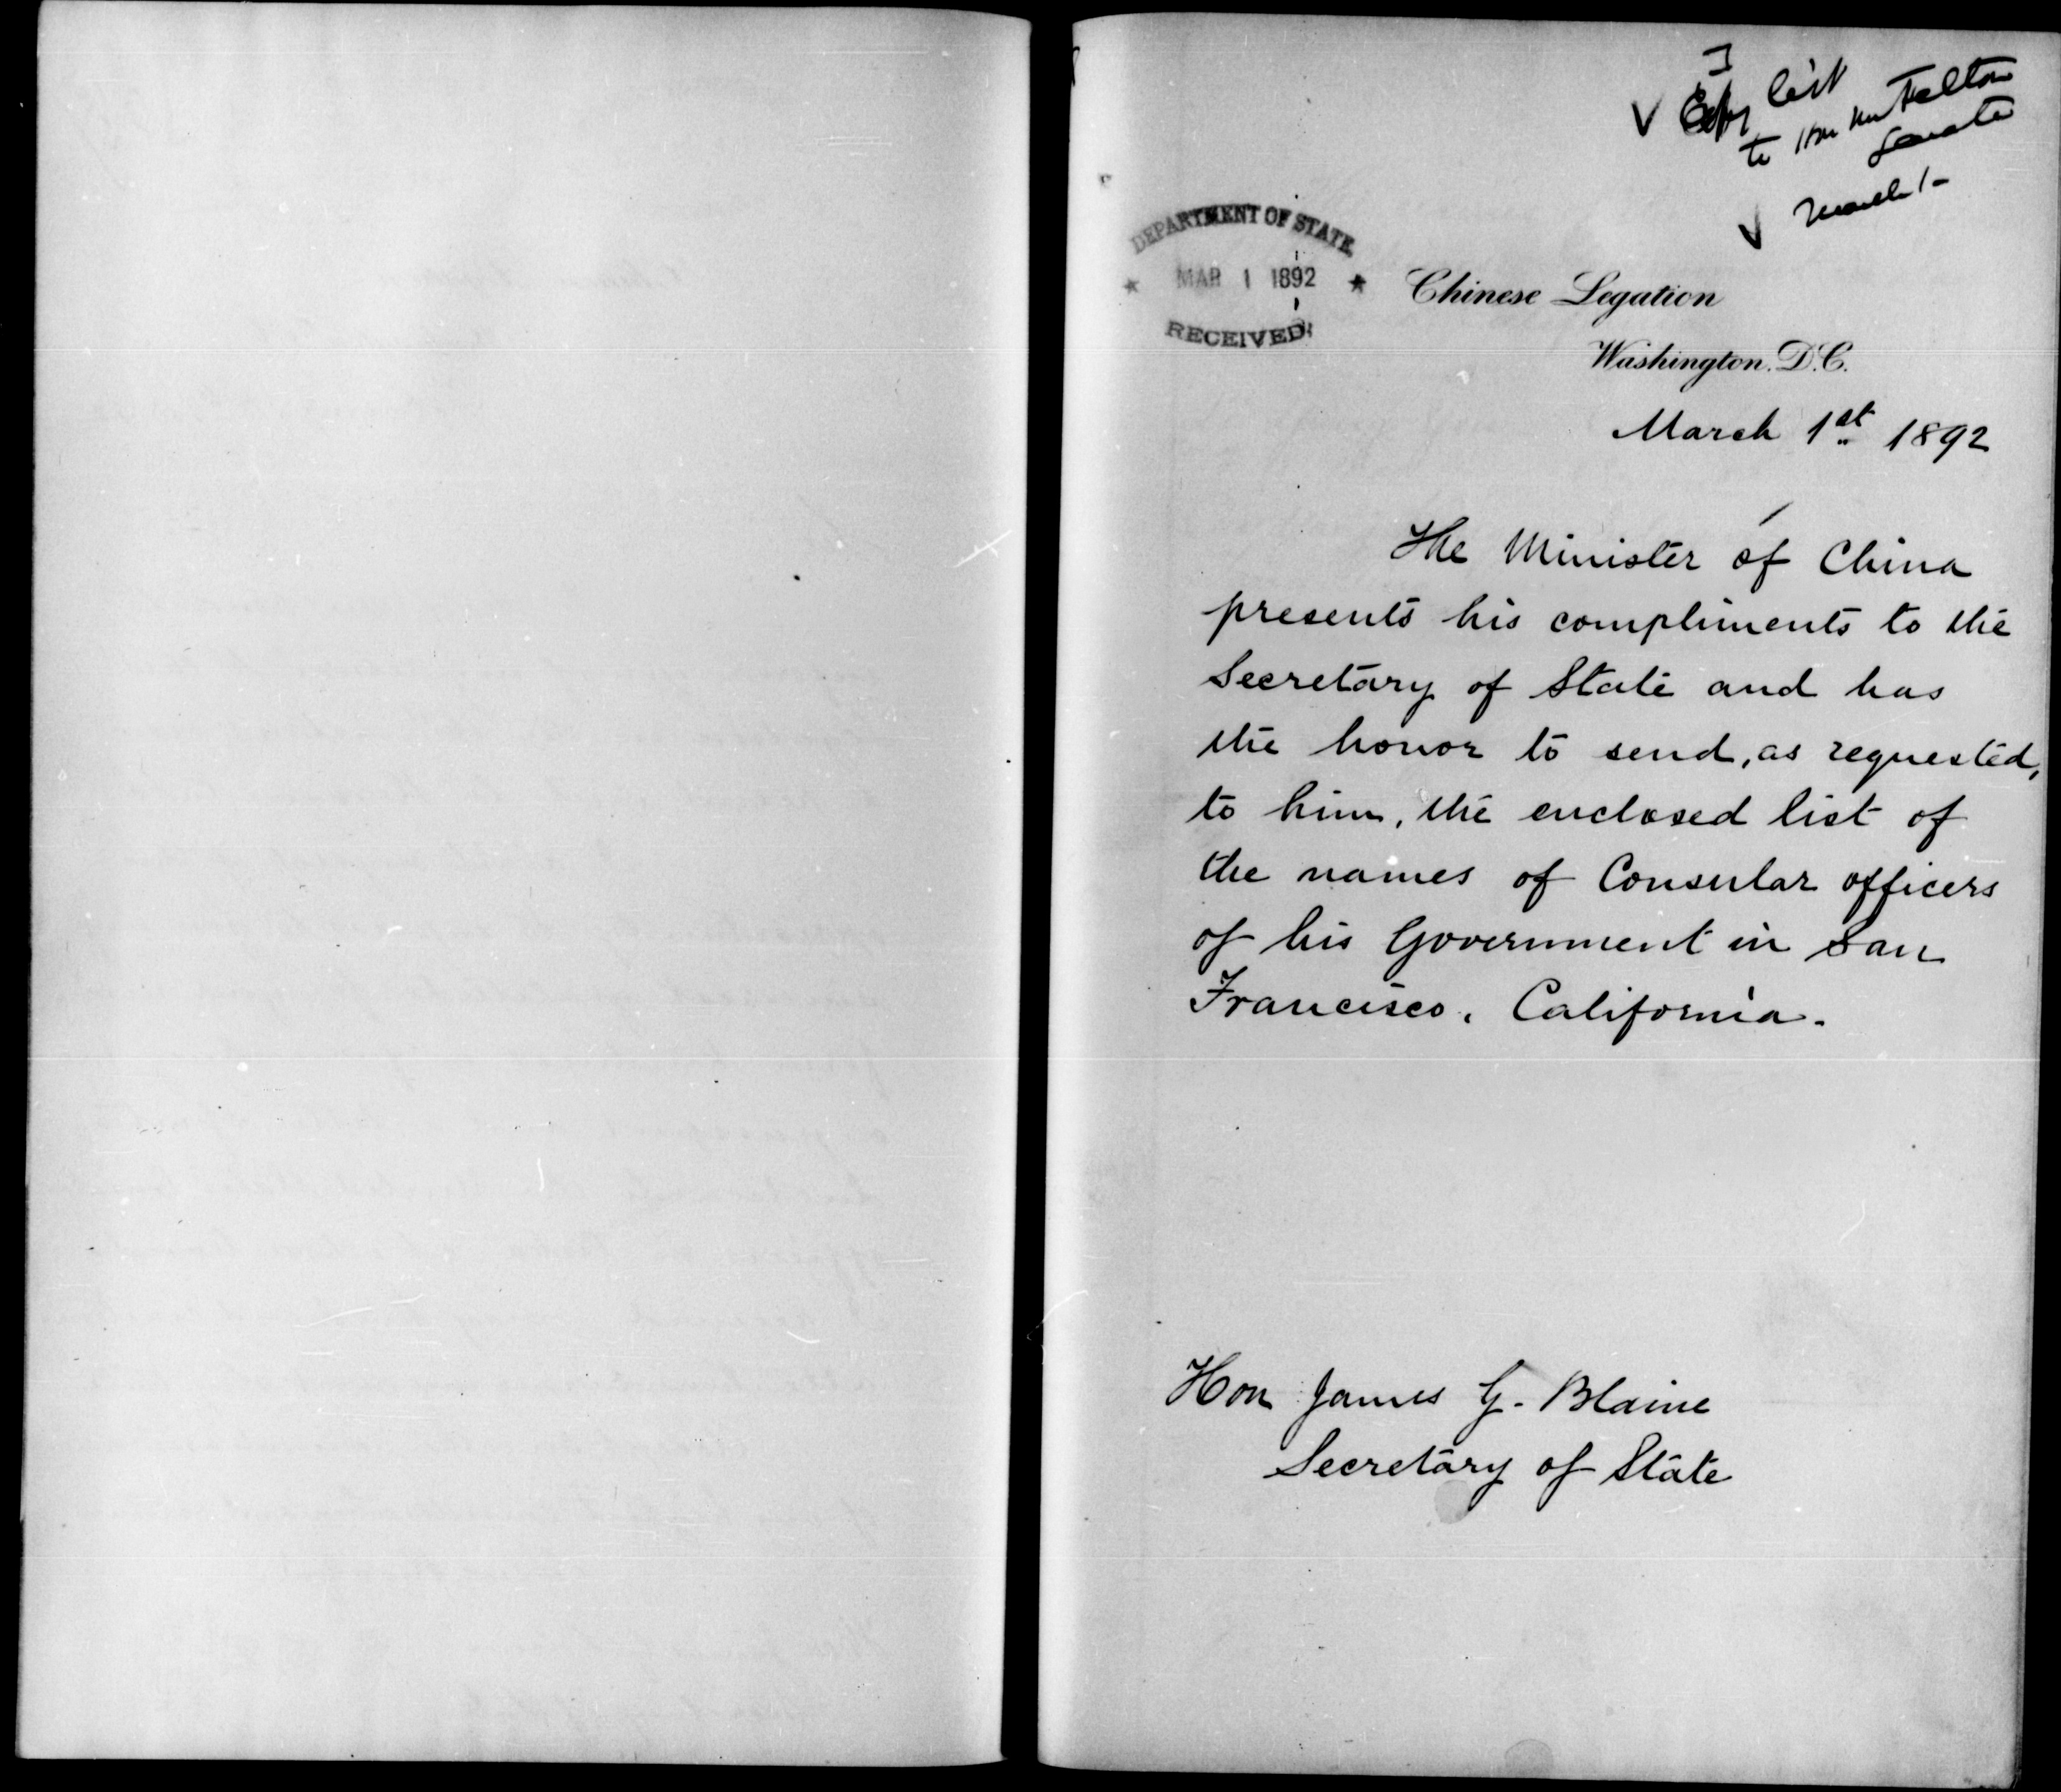 Copy list
to Hon Mr Felton
Senate
March 1-
DEPARTMENT OF STATE
MAR 1 1892
RECEIVED
Chinese Legation
Washington. D.C.
March 1st 1892
The Minister of China
presents his compliments to the
Secretary of State and has
the honor to send, as requested,
to him, the enclosed list of
the names of Consular officers
of his Government in San
Francisco, California.
Hon James G. Blaine
Secretary of State